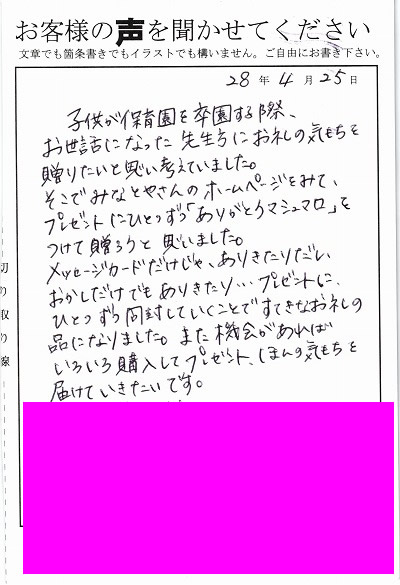 お客様の声を聞かせてください
文章でも箇条書きでもイラストでも構いません。ご自由にお書き下さい。
28年4月25日
子供が保育園を卒園する際、
お世話になった先生方にお礼の気もちを
贈りたいと思い考えていました。
そこでみなとやさんのホームページをみて、
プレゼントにひとつずつ「ありがとうマシュマロ」を
つけて贈ろうと思いました。
メッセージカードだけじゃ、ありきたりだし、
おかしだけでもありきたり…プレゼントに、
ひとつずつ同封していくことですてきなお礼の
品になりました。また機会があれば
いろいろ購入してプレゼント、ほんの気もちを
届けていきたいです。
切り取り線